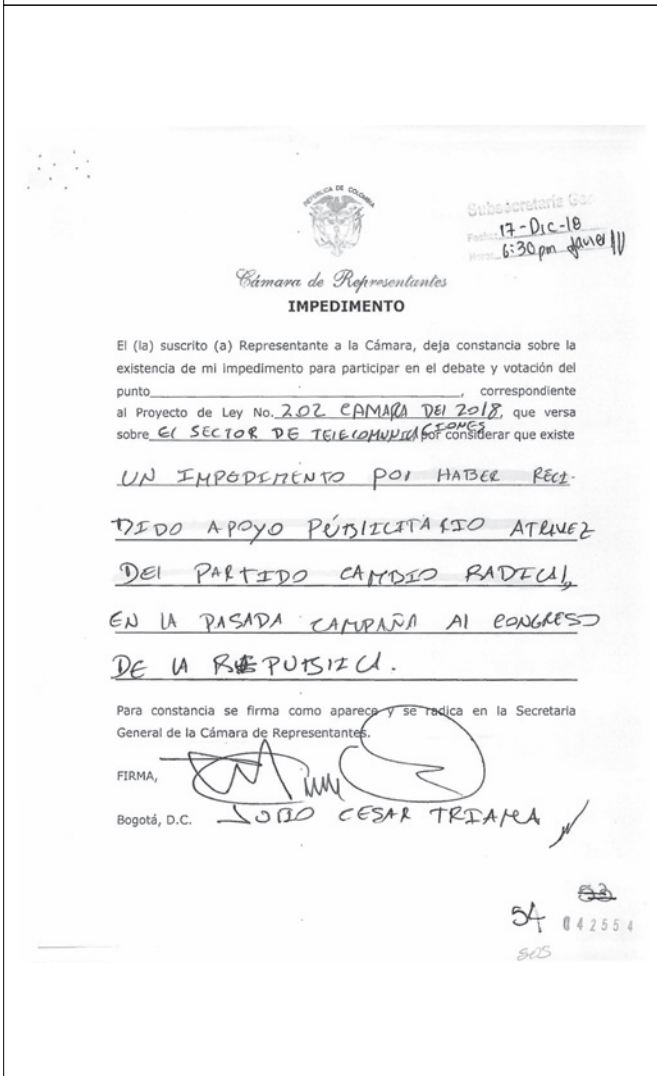 REPUBLICA DE COLOMBIA
Subsecretaria
17-Dic-18
6:30 pm Javier
Cámara de Representantes
IMPEDIMENTO
El (la) suscrito (a) Representante a la Cámara, deja constancia sobre la
existencia de mi impedimento para participar en el debate y votación del
punto , correspondiente
al Proyecto de Ley No. 202 CAMARA DEl 2018, que versa
sobre El SECTOR DE TElECOMUNICACIONES por considerar que existe
UN IMPEDIMENTO POR HABER RECI-
BIDO APOYO PÚBlICITARIO ATRAVEZ
DEl PARTIDO CAMBIO RADICAl,
EN lA PASADA CAMPAÑA Al CONGRESO
DE lA REPUBlICA.
Para constancia se firma como aparece y se radica en la Secretaria
General de la Cámara de Representantes.
FIRMA,
Bogotá, D.C. JULIO CESAR TRIANA
53
54 042554